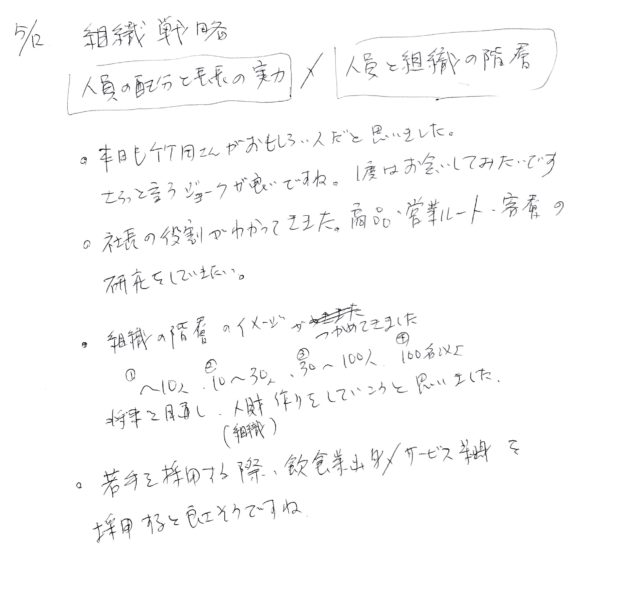 5/12 組織戦略
人員の配分と長長の実力 / 人員と組織の階層
。本日も竹田さんがおもしろい人だと思いました。
さらっと言うジョークが良いですね。1度はお会いしてみたいです
。社長の役割がわかってきました。商品・営業ルート・客層の
研究をしていきたい。
・組織の階層のイメージがつかめてきました
① ② ③ ④
〜10人、10〜30人、30〜100人、100名以上
将来を見通し、人財作りをしていこうと思いました。
(組織)
。若手を採用する際、飲食業出身/サービス業出身を
採用すると良さそうですね